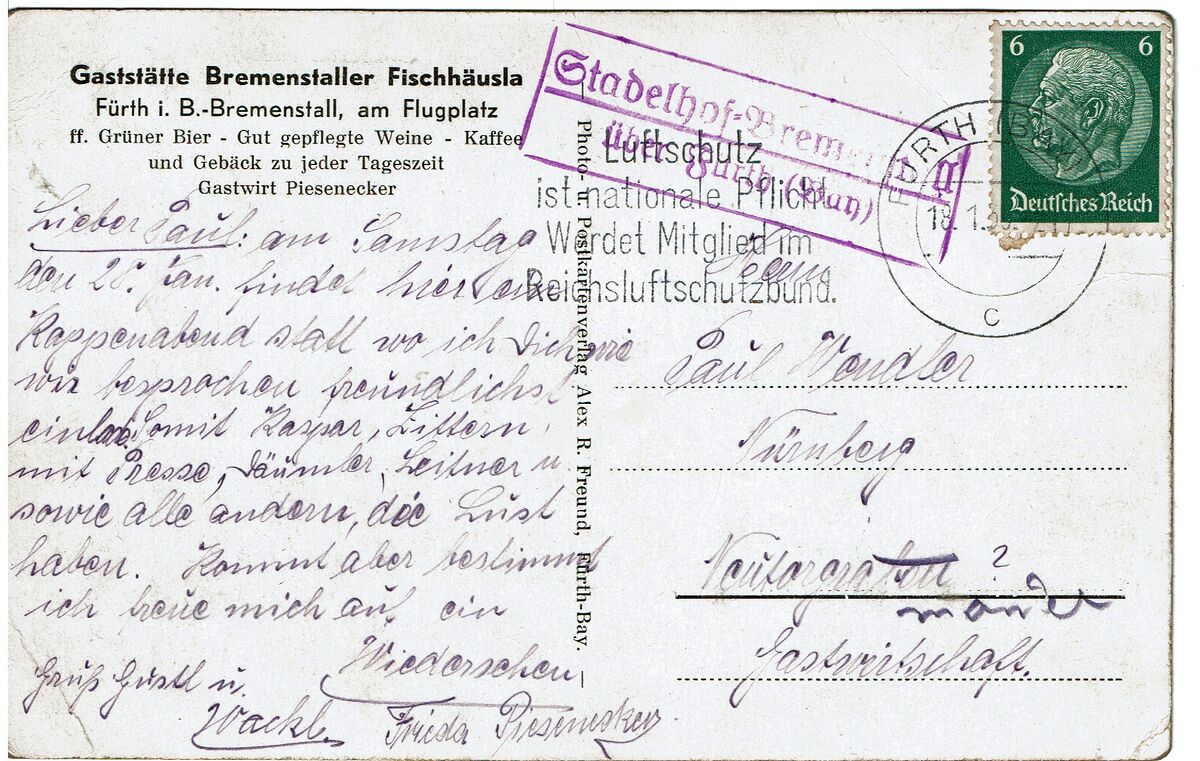 Gaststätte Bremenstaller Fischhäusla
Fürth i. B.-Bremenstall, am Flugplatz
ff. Grüner Bier - Gut gepflegte Weine - Kaffee
und Gebäck zu jeder Tageszeit
Gastwirt Piesenecker
Lieber Paul: am Samstag
den 28. Jan. findet hier ein
Kappenabend statt wo ich Dich wie
wir besprochen freundlichst
einlade. Somit Kaspar, Zittern,
mit Presse, Däumler, Leitner u
sowie alle andern, die Lust
haben. Kommt aber bestimmt
ich freue mich auf ein
Wiedersehen
Gruß Gustl u.
Wackl. Frieda Piesenecker
Photo- u. Postkartenverlag Alex R. Freund, Fürth-Bay.
Stadelhof-Bremenstall
über Fürth (Bay)
Luftschutz
ist nationale Pflicht
Werdet Mitglied im
Reichsluftschutzbund.
FÜRTH (BAY)
18.1.
c
6 6
Deutsches Reich
Herrn
Paul Wendler
Nürnberg
Neutorgraben ?
Gastwirtschaft.